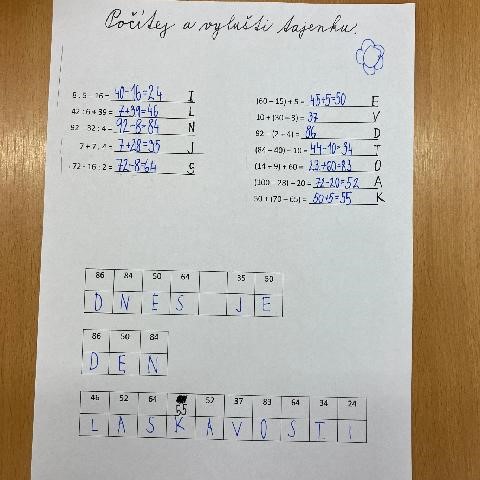 Počítej a vylušti tajenku.
8 . 5 – 16 = 40-16=24 I
42 : 6 + 39 = 7+39=46 L
92 – 32 : 4 = 92-8=84 N
7 + 7 . 4 = 7+28=35 J
72 – 16 : 2 = 72-8=64 S
(60 – 15) + 5 = 45+5=50 E
10 + (30 – 3) = 37 V
92 – (2 + 4) = 86 D
(84 – 40) – 10 = 44-10=34 T
(14 + 9) + 60 = 23+60=83 O
(100 – 28) – 20 = 72-20=52 A
50 + (70 – 65) = 50+5=55 K
86 84 50 64 35 50
D N E S J E
86 50 84
D E N
46 52 64 55 52 37 83 64 34 24
L A S K A V O S T I